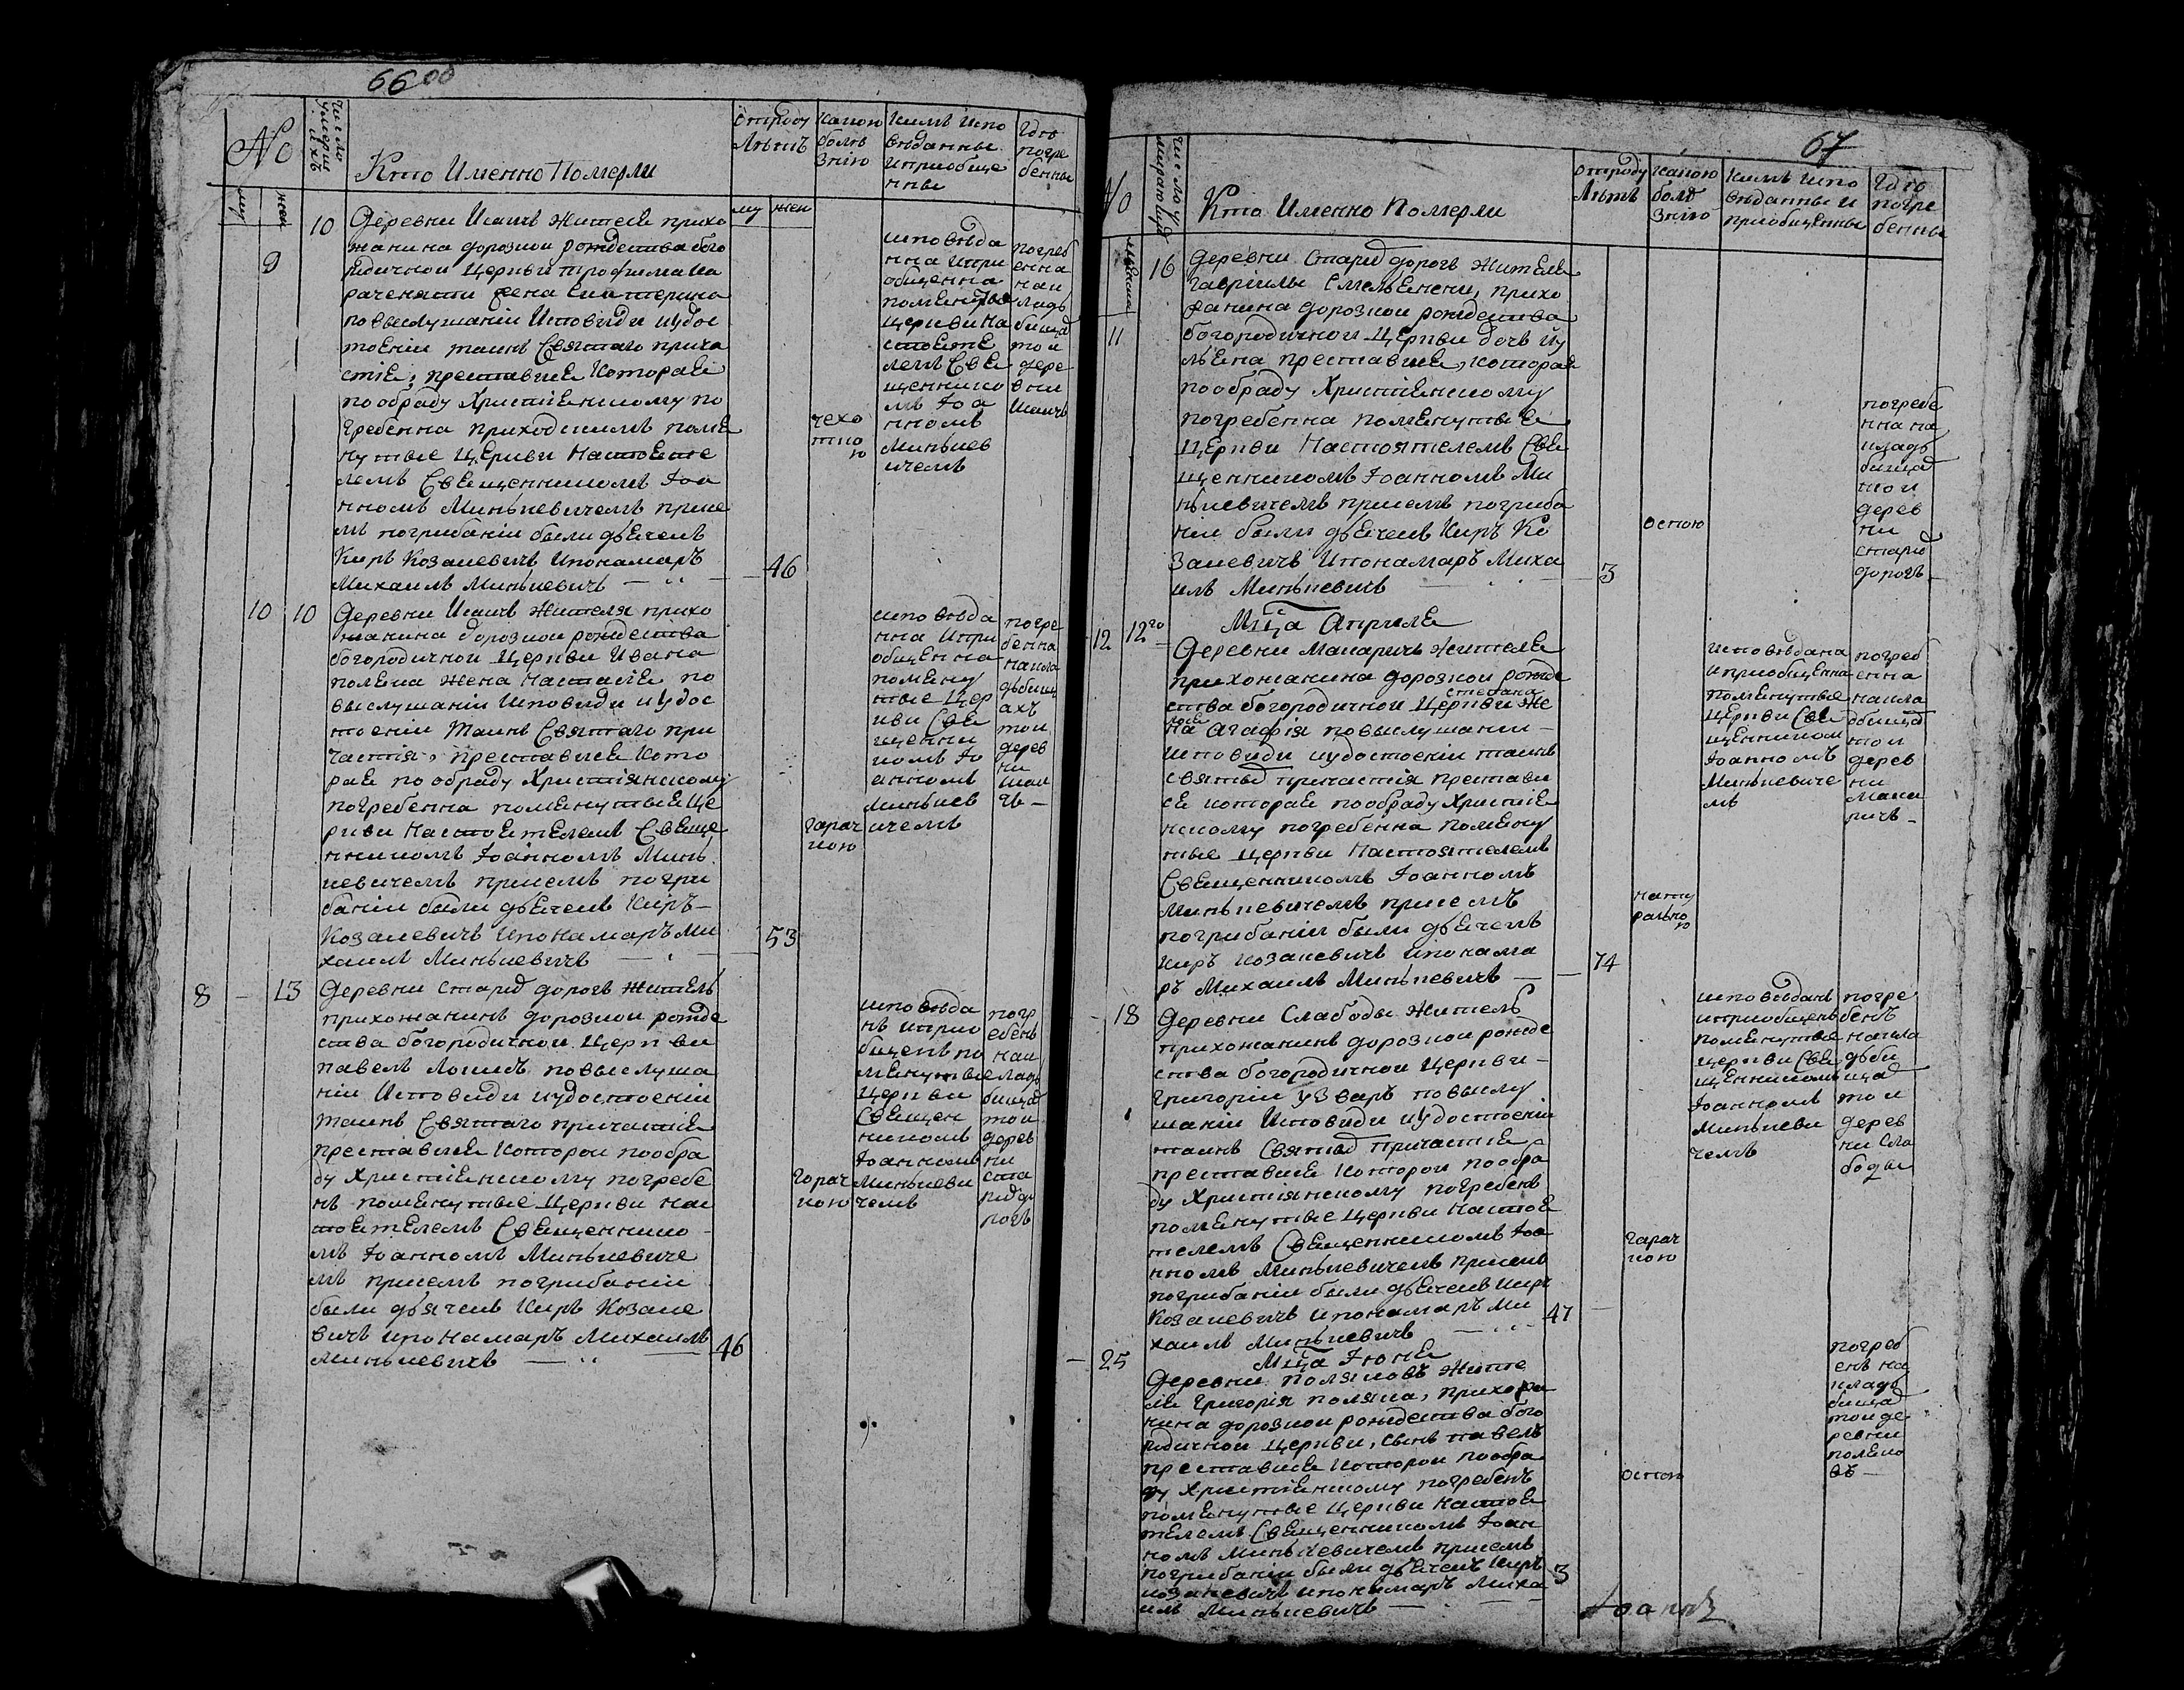 66 об
№
Число умерших
Кто Именно Померли
отроду Лѣтъ
Какою болѣзнію
Кимъ испо
вѣданны
и приобще
нны
Гдѣ
погре
бенны
му
жен
му жен
9
10
Деревни Исаич Жителе прихо
жанина дорозкои рождества бого
родичнои Церкви трофима Ка
раченяти жена Екатерина
по выслушаніи Исповиди и удос
тоеніи таинъ Святаго прича
стіе, престависе Которае
по обраду Христіенскому по
гребенна приходскимъ поме
нутые Церкви Настоете
лемъ Свещенникомъ Іоа
нномъ Минкевичемъ присе
мъ погрибаніи были дьечекъ
Киръ Козакевичъ Ипонамаръ
Михаилъ Минкевичъ
46
чехо
тко
ю
исповѣда
нна и при
общенна
поменутые
церкви на
стоете
лемъ Све
щеннико
мъ Іоа
нномъ
Минкев
ичемъ
погреб
енна
на к
ладь
бищахъ
той
дере
вни
Исаичъ
10
10
Деревни Исаичъ Жителя прихо
жанина дорозкои рождества
богородичнои Церкви Ивана
полека жена Настасіе по
выслушаніи Исповиди и удос
тоеніи таинъ Святаго при
частія, престависе Кото
рае по обраду Христіянскому
погребенна поменутые Це
ркви Настоетелемъ Свеще
нникомъ Іоанномъ Минь
кевичемъ присемъ погри
баніи были дьечекъ Киръ
Козакевичъ Ипонамаръ Ми
хаилъ Минкевичъ
53
гарач
кою
исповѣда
нна и при
общенна
помену
тые Цер
кви Све
щенни
комъ Іо
анномъ
Минкев
ичемъ
погре
бенна
на кла
дьбищ
ахъ
той
дерев
ни
Исаи
чъ
8
13
Деревни Старых дорогъ Житель
прихожанинъ дорозкои рожде
ства богородичнои Церкви
павелъ Лошакъ по выслуша
ніи Исповиди и удостоеніи
таинъ Святаго причастіе
престависе Которои по обра
ду Христіенскому погребе
нъ поменутые Церкви нас
тоетелемъ Свещеннико
мъ Іоанномъ Минкевиче
мъ присемъ погрибаніи
были дьячекъ Киръ Козаке
вичъ ипонамаръ Михаилъ
Минкевичъ
46
горач
кою
исповѣда
нъ и прио
бщенъ по
менутые
Церкви
Свещен
никомъ
Іоанномъ
Минкеви
чемъ
погр
ебенъ
на к
ладь
бищахъ
той
дерев
ни
ста
рых до
рогъ
67
№
Число умерших
Кто Именно Померли
отроду Лѣтъ
Какою болѣзнію
Кимъ испо
вѣданны и
приобщенны
Гдѣ
погре
бенны
11
16
Деревни Старых дорогъ Жителе
Гавріилы Емельенени, прихо
жанина дорозкои рождества
богородичнои Церкви дочъ Иу
льена престависе, которае
по обраду Христіенскому
погребенна поменутые
Церкви Настоятелемъ Све
щенникомъ Іоанномъ Ми
нкевичемъ присемъ погриба
ніи были дьечекъ Киръ Ко
закевичъ Ипонамаръ Миха
илъ Минкевичъ
3
оспою
погребе
нна на
кладь
бищах
той
дерев
ни
старых
дорогъ
Мца Априле
12
12го
Деревни Макаричъ Жителе
прихожанина дорозкои рожде
ства богородичнои Церкви степана же
на Агафія по выслушании
исповиди и удостоеніи таинъ
святых причастія престави
се которае по обраду Христіе
нскому погребенна помену
тые Церкви Настоятелемъ
Свещенникомъ Іоанномъ
Минкевичемъ присемъ
погрибаніи были дьечекъ
Киръ Козакевичъ ипонама
ръ Михаилъ Минкевичъ
74
нату
рально
ю
исповѣдана
и приобщенна
поменутые
церкви Све
щенником
Іоанномъ
Минкевиче
мъ
погреб
енна
на кла
дбищах
той
дерев
ни
Мака
ричъ
18
Деревни Слабоды Житель
прихожанинъ дорозкои рожде
ства богородичнои Церкви
григоріи узваръ по выслу
шаніи Исповиди и удостоеніи
таинъ Святых причастіе
престависе Которои по обра
ду Христіянскому погребенъ
поменутые Церкви Настое
телемъ Свещенникомъ Іоа
нномъ Минкевичемъ присемъ
погрибаніи были дьечекъ Киръ
Козакевичъ ипонамаръ Ми
хаилъ Минкевичъ
47
гарач
кою
исповѣданъ
и приобщенъ
поменутые
церкви Све
щенникомъ
Іоанномъ
Минкеви
чемъ
погре
бенъ
на кла
дьби
щах
той
дерев
ни Сла
боды
Мца Іюне
25
Деревни поляковъ Жите
ле Григорія поляка, прихожа
нина дорозкои рождества бого
родичнои Церкви, сынъ павелъ
престависе Которои по обра
ду Христіенскому погребенъ
поменутые Церкви Настое
телемъ Свещенникомъ Іоан
номъ Минкевичемъ присемъ
погрибаніи были дьечекъ Киръ
козакевичъ ипонамаръ Миха
илъ Минкевичъ
3
оспою
погреб
енъ на
кладь
бищах
той де
ревни
поляко
въ
Іоаннъ